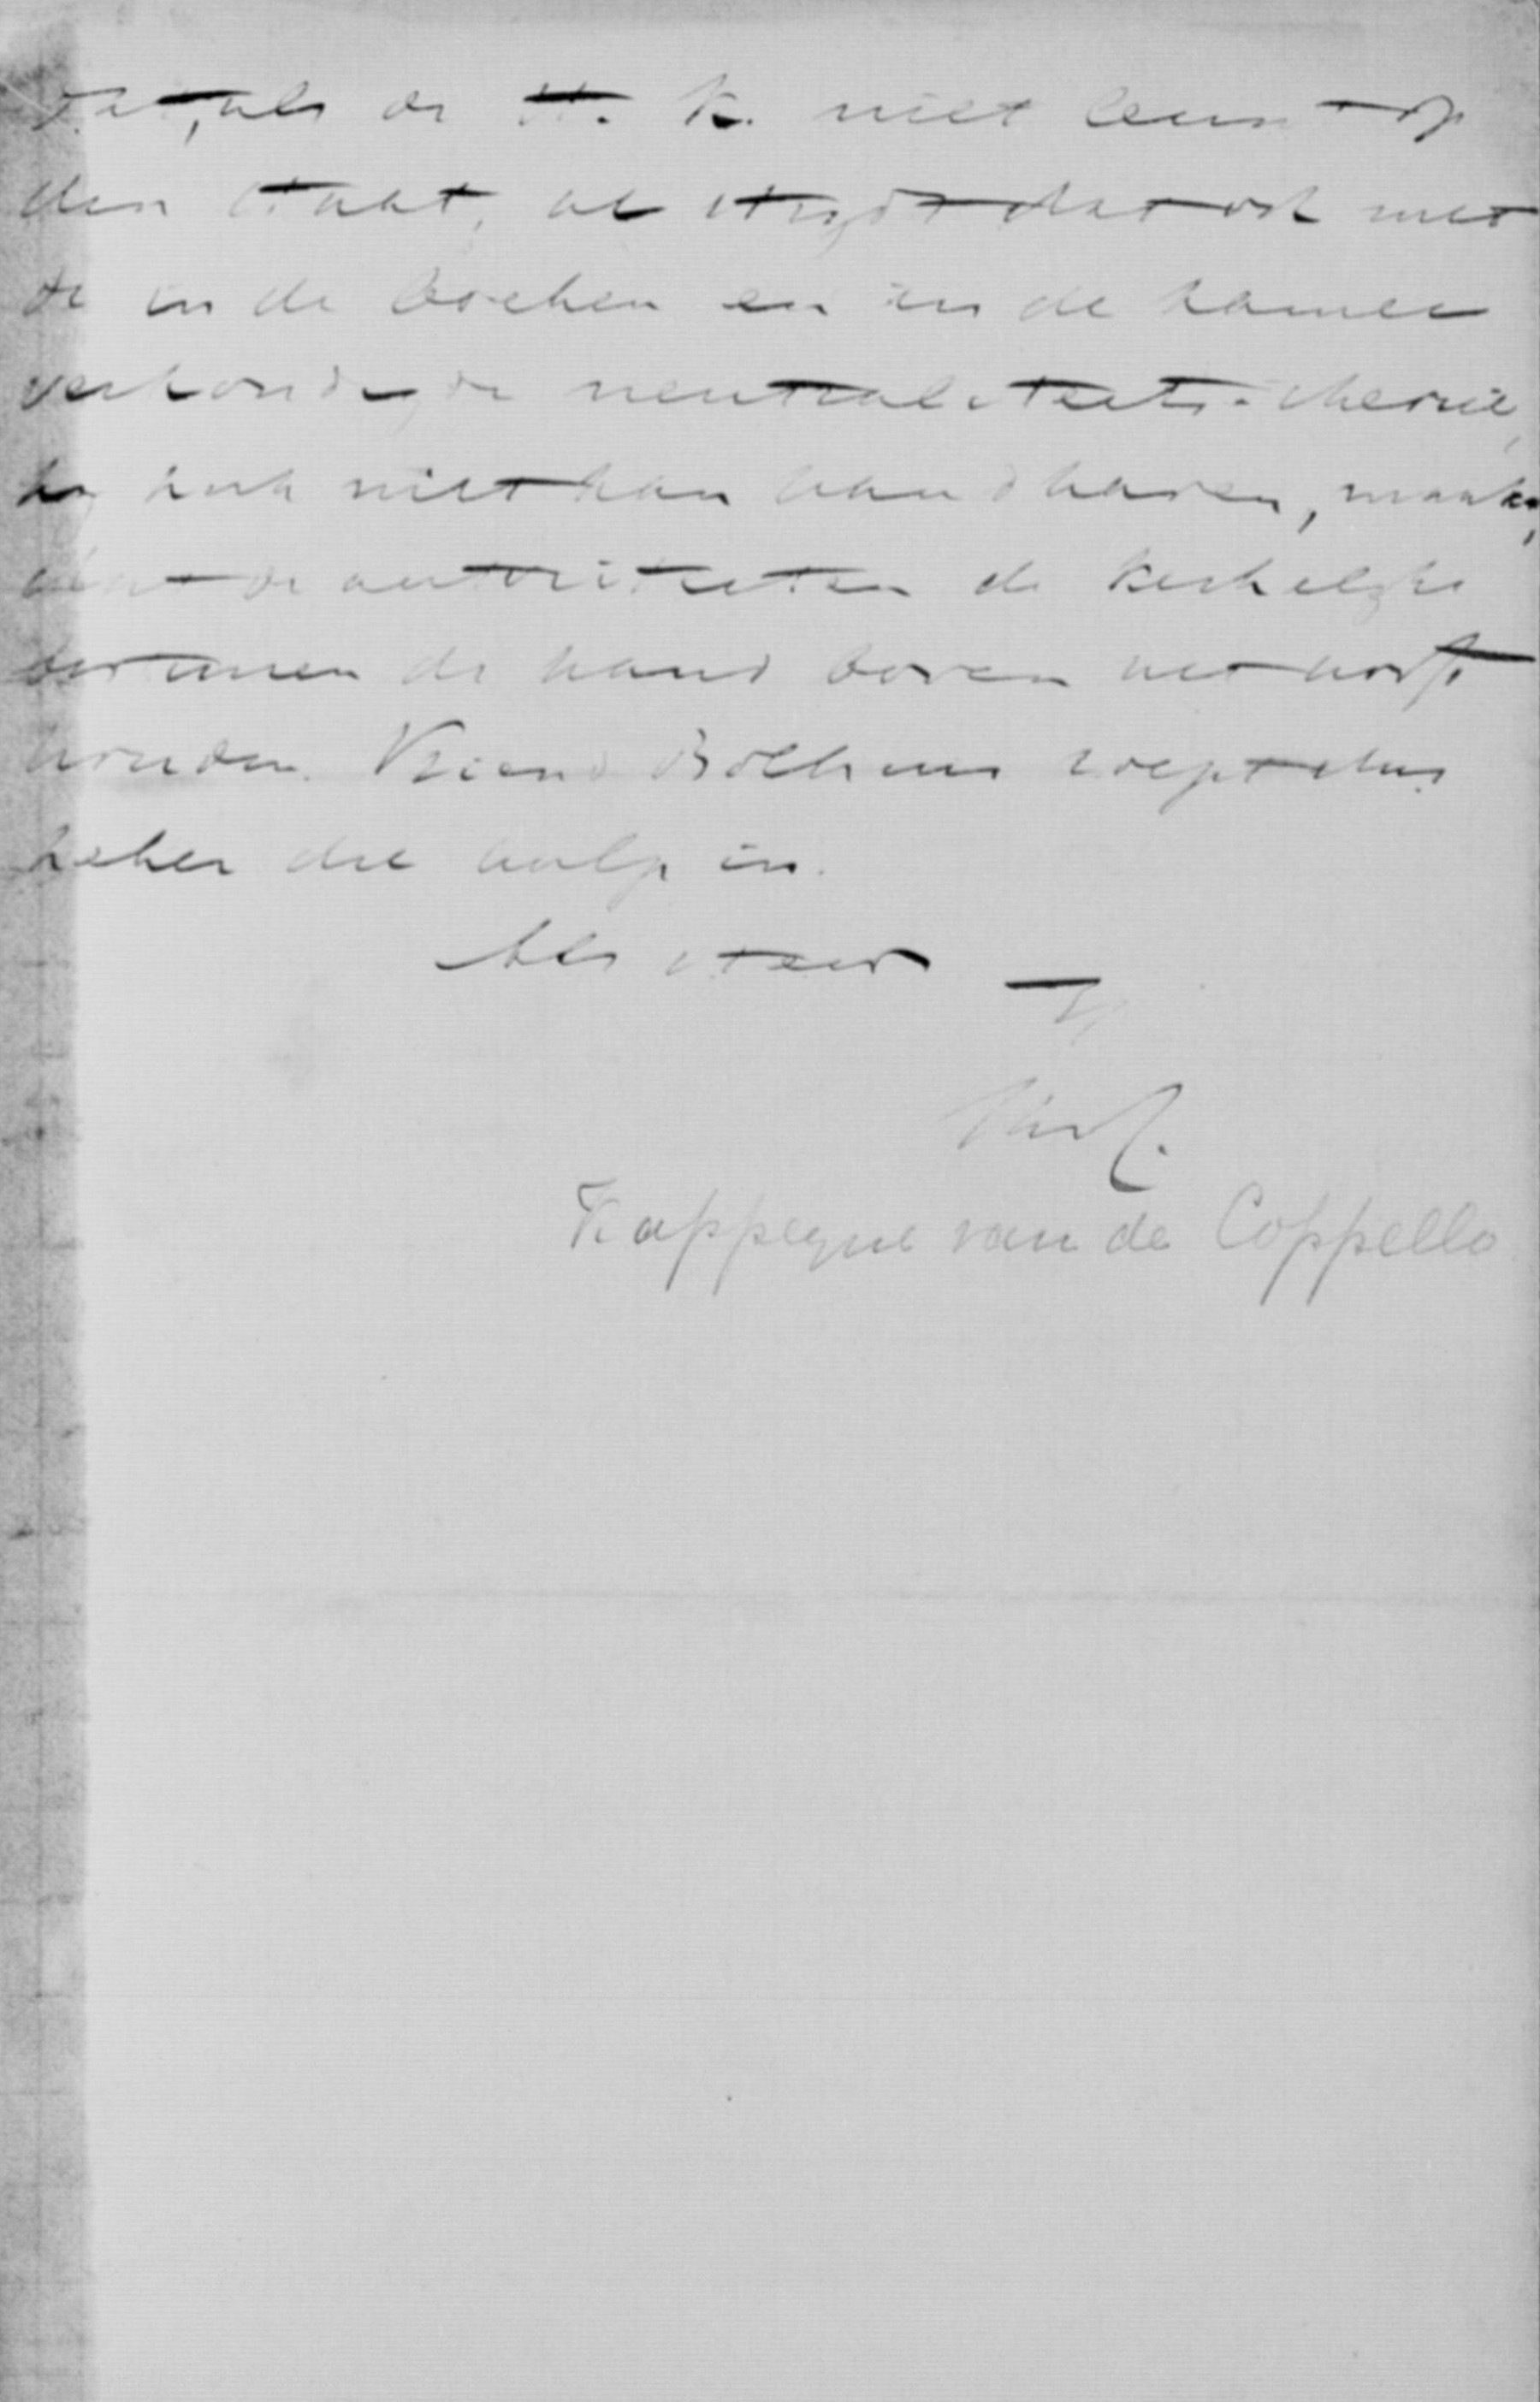 Dat, als de H. K. niet leunt op
den Staat, al strijdt dat ook met
de in de boeken en in de kamer
verkondigde neutraliteits-theorie,
hij zich niet kan handhaven, maakt,
dat de autoriteiten de kerkelijke
besturen de hand boven het hoofd
houden. Vriend roept dus
zeker die hulp in.
Als steeds
Kappeyne van de Coppello